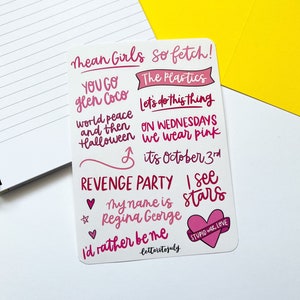 Mean Girls so fetch!
YOU GO
glen Coco
The Plastics
Let's do this thing
world peace
and then
Halloween
ON WEDNESDAYS
we wear pink
it's October 3rd
REVENGE PARTY
I see
stars
my name is
Regina George
I'd rather be me
STUPID with LOVE